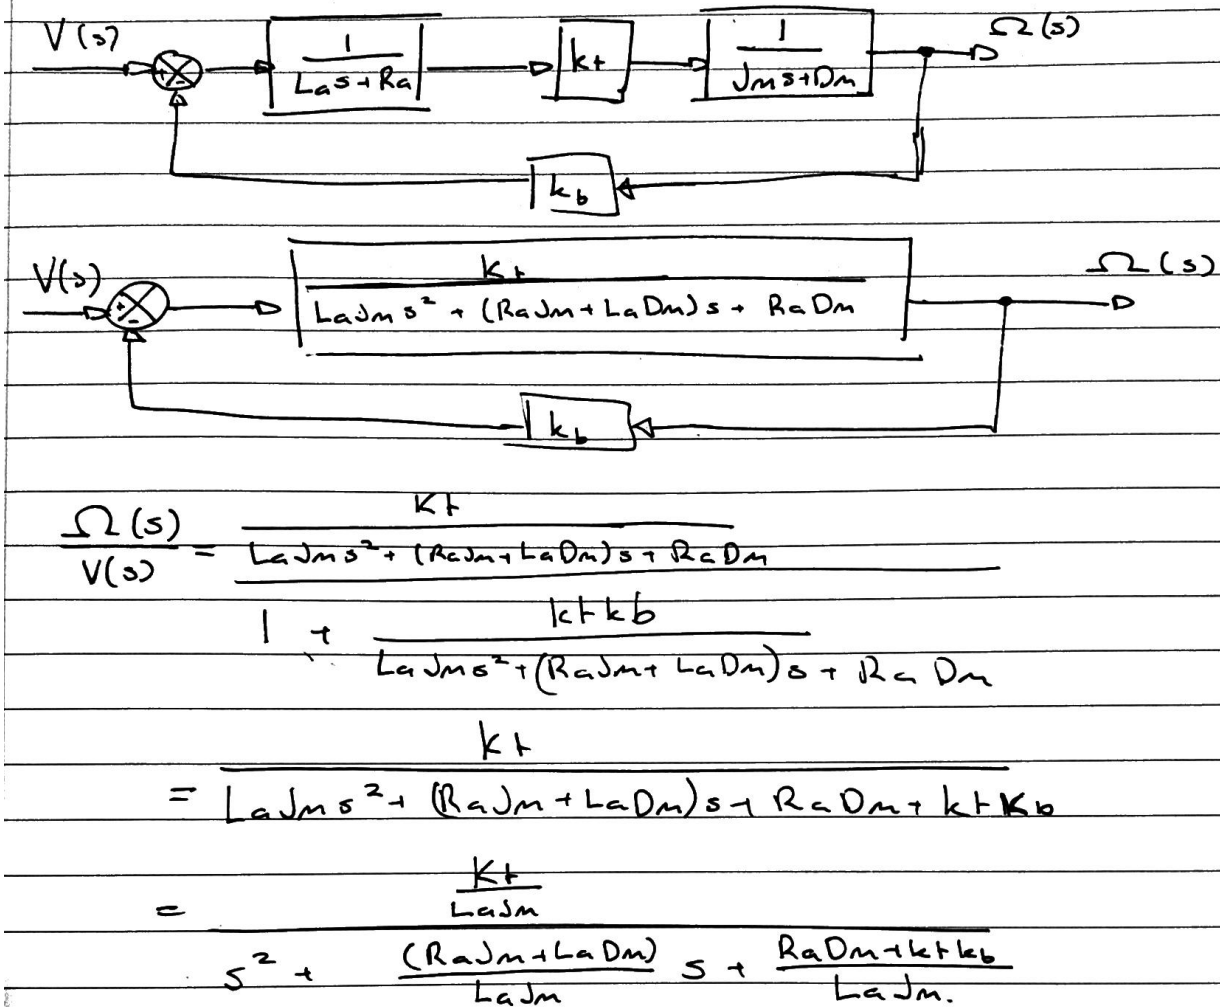 V(s) + - 1 / Las+Ra kt 1 / Jms+Dm Ω(s)
kb
V(s) + - Kt / LaJms² + (RaJm+LaDm)s + RaDm Ω(s)
kb
Ω(s) / V(s) = Kt / LaJms² + (RaJm+LaDm)s + RaDm
1 + ktkb / LaJms² + (RaJm+LaDm)s + RaDm
= kt / LaJms² + (RaJm+LaDm)s + RaDm + ktKb
= Kt / LaJm
s² + (RaJm+LaDm) / LaJm s + RaDm+ktkb / LaJm.